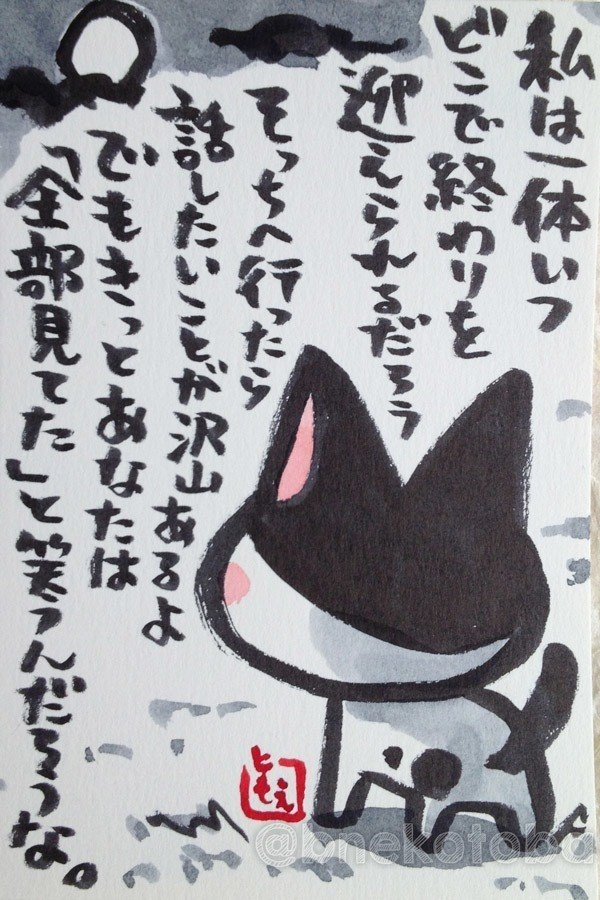 私は一体いつ
どこで終わりを
迎えられるだろう
そっちへ行ったら
話したいことが沢山あるよ
でもきっとあなたは
「全部見てた」と笑うんだろうな。
ともえ
@bnekotoba